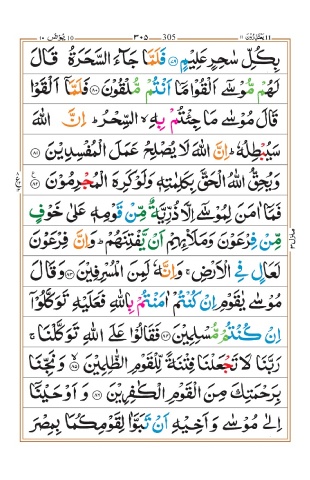 یعتذرون ۱۱ 305 ۳۰۵ یونس ۱۰
بِكُلِّ سٰحِرٍ عَلِيْمٍ ﴿۷۹﴾ فَلَمَّا جَآءَ السَّحَرَةُ قَالَ
لَهُمْ مُّوْسٰۤى اَلْقُوْا مَاۤ اَنْتُمْ مُّلْقُوْنَ ﴿۸۰﴾ فَلَمَّاۤ اَلْقَوْا
قَالَ مُوْسٰى مَا جِئْتُمْ بِهِ ۙ السِّحْرُ ؕ اِنَّ اللّٰهَ
سَيُبْطِلُهٗ ؕ اِنَّ اللّٰهَ لَا يُصْلِحُ عَمَلَ الْمُفْسِدِيْنَ ﴿۸۱﴾
وَيُحِقُّ اللّٰهُ الْحَقَّ بِكَلِمٰتِهٖ وَلَوْ كَرِهَ الْمُجْرِمُوْنَ ﴿۸۲﴾
فَمَاۤ اٰمَنَ لِمُوْسٰۤى اِلَّا ذُرِّيَّةٌ مِّنْ قَوْمِهٖ عَلٰى خَوْفٍ
مِّنْ فِرْعَوْنَ وَمَلَا۟ئِهِمْ اَنْ يَّفْتِنَهُمْ ؕ وَاِنَّ فِرْعَوْنَ
لَعَالٍ فِى الْاَرْضِ ۚ وَاِنَّهٗ لَمِنَ الْمُسْرِفِيْنَ ﴿۸۳﴾ وَقَالَ
مُوْسٰى يٰقَوْمِ اِنْ كُنْتُمْ اٰمَنْتُمْ بِاللّٰهِ فَعَلَيْهِ تَوَكَّلُوْۤا
اِنْ كُنْتُمْ مُّسْلِمِيْنَ ﴿۸۴﴾ فَقَالُوْا عَلَى اللّٰهِ تَوَكَّلْنَا ۚ
رَبَّنَا لَا تَجْعَلْنَا فِتْنَةً لِّلْقَوْمِ الظّٰلِمِيْنَ ﴿۸۵﴾ وَنَجِّنَا
بِرَحْمَتِكَ مِنَ الْقَوْمِ الْكٰفِرِيْنَ ﴿۸۶﴾ وَاَوْحَيْنَاۤ
اِلٰى مُوْسٰى وَاَخِيْهِ اَنْ تَبَوَّاٰ لِقَوْمِكُمَا بِمِصْرَ